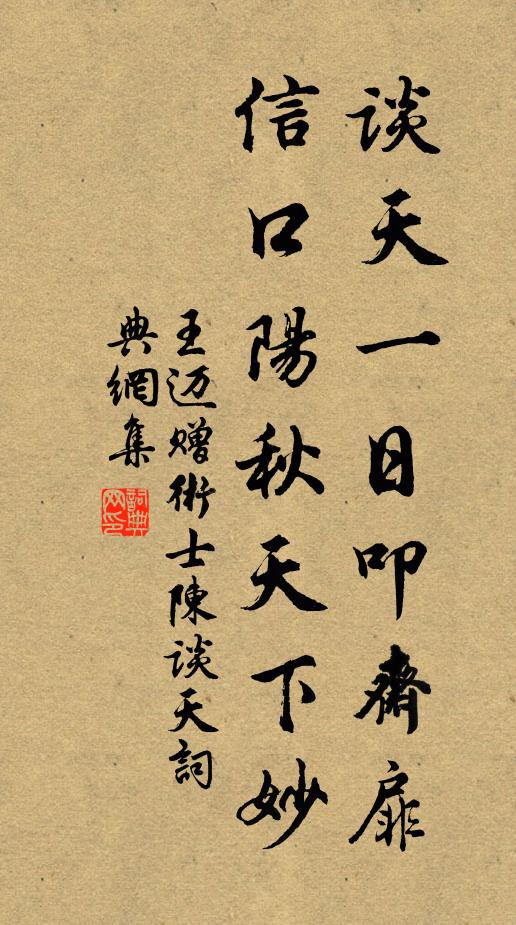 谈天一日叩齋扉
信口陽秋天下妙
王迈赠術士陳谈天詞
典網集
詞典網印